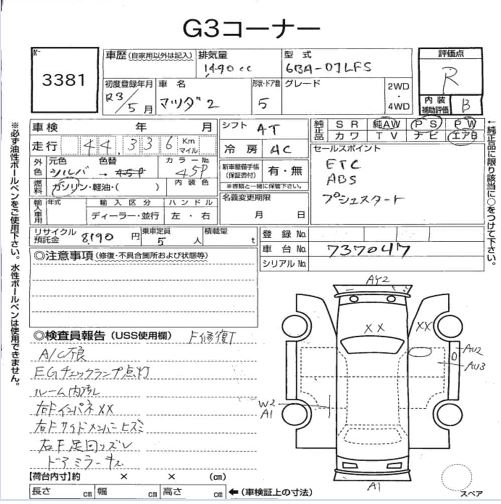 G3コーナー
No. 3381
車歴(自家用以外は記入) 排気量 1490cc 型式 6BA-DJLFS 評価点 R
初度登録年月 R3/5月 車名 マツダ2 形状・ドア数 5 グレード 2WD・4WD 内装補助評価 B
車検 年 月 シフト AT 純正品 SR 純AW PS PW
カワ TV ナビ エアB
走行 44,336 Km マイル 冷房 AC セールスポイント
外色 元色 シルバー 色替 → 45P カラーNo. 45P 新車整備手帳(保証書付) 有・無
※書類と一緒に保管して下さい。
ETC
ABS
プシュスタート
燃料 ガソリン・軽油・( ) 内装色 名義変更期限 月 日
輸入車用 年式 輸入区分 ディーラー・並行 ハンドル 左・右
リサイクル預託金 8,190円 乗車定員 5人 積載量 t
登録No.
車台No. 737047
シリアルNo.
◎注意事項(修復・不具合箇所および状態等)
◎検査員報告(USS使用欄) F修復T
A/C不良
EGチェックランプ点灯
ルーム内汚れ
右Fインパネ XX
右Fサイドメンバーヒズミ
右F足回りズレ
ドアミラーキズ
AY2
XX
XX
AU2
AU3
W2
A1
A1
スペア
【荷台内寸】約 × × (cm)
長さ cm 幅 cm 高さ cm ←(車検証上の寸法)
※必ず油性ボールペンをご使用下さい。水性ボールペンは使用できません。
←純正品に限り該当に○をつけて下さい。